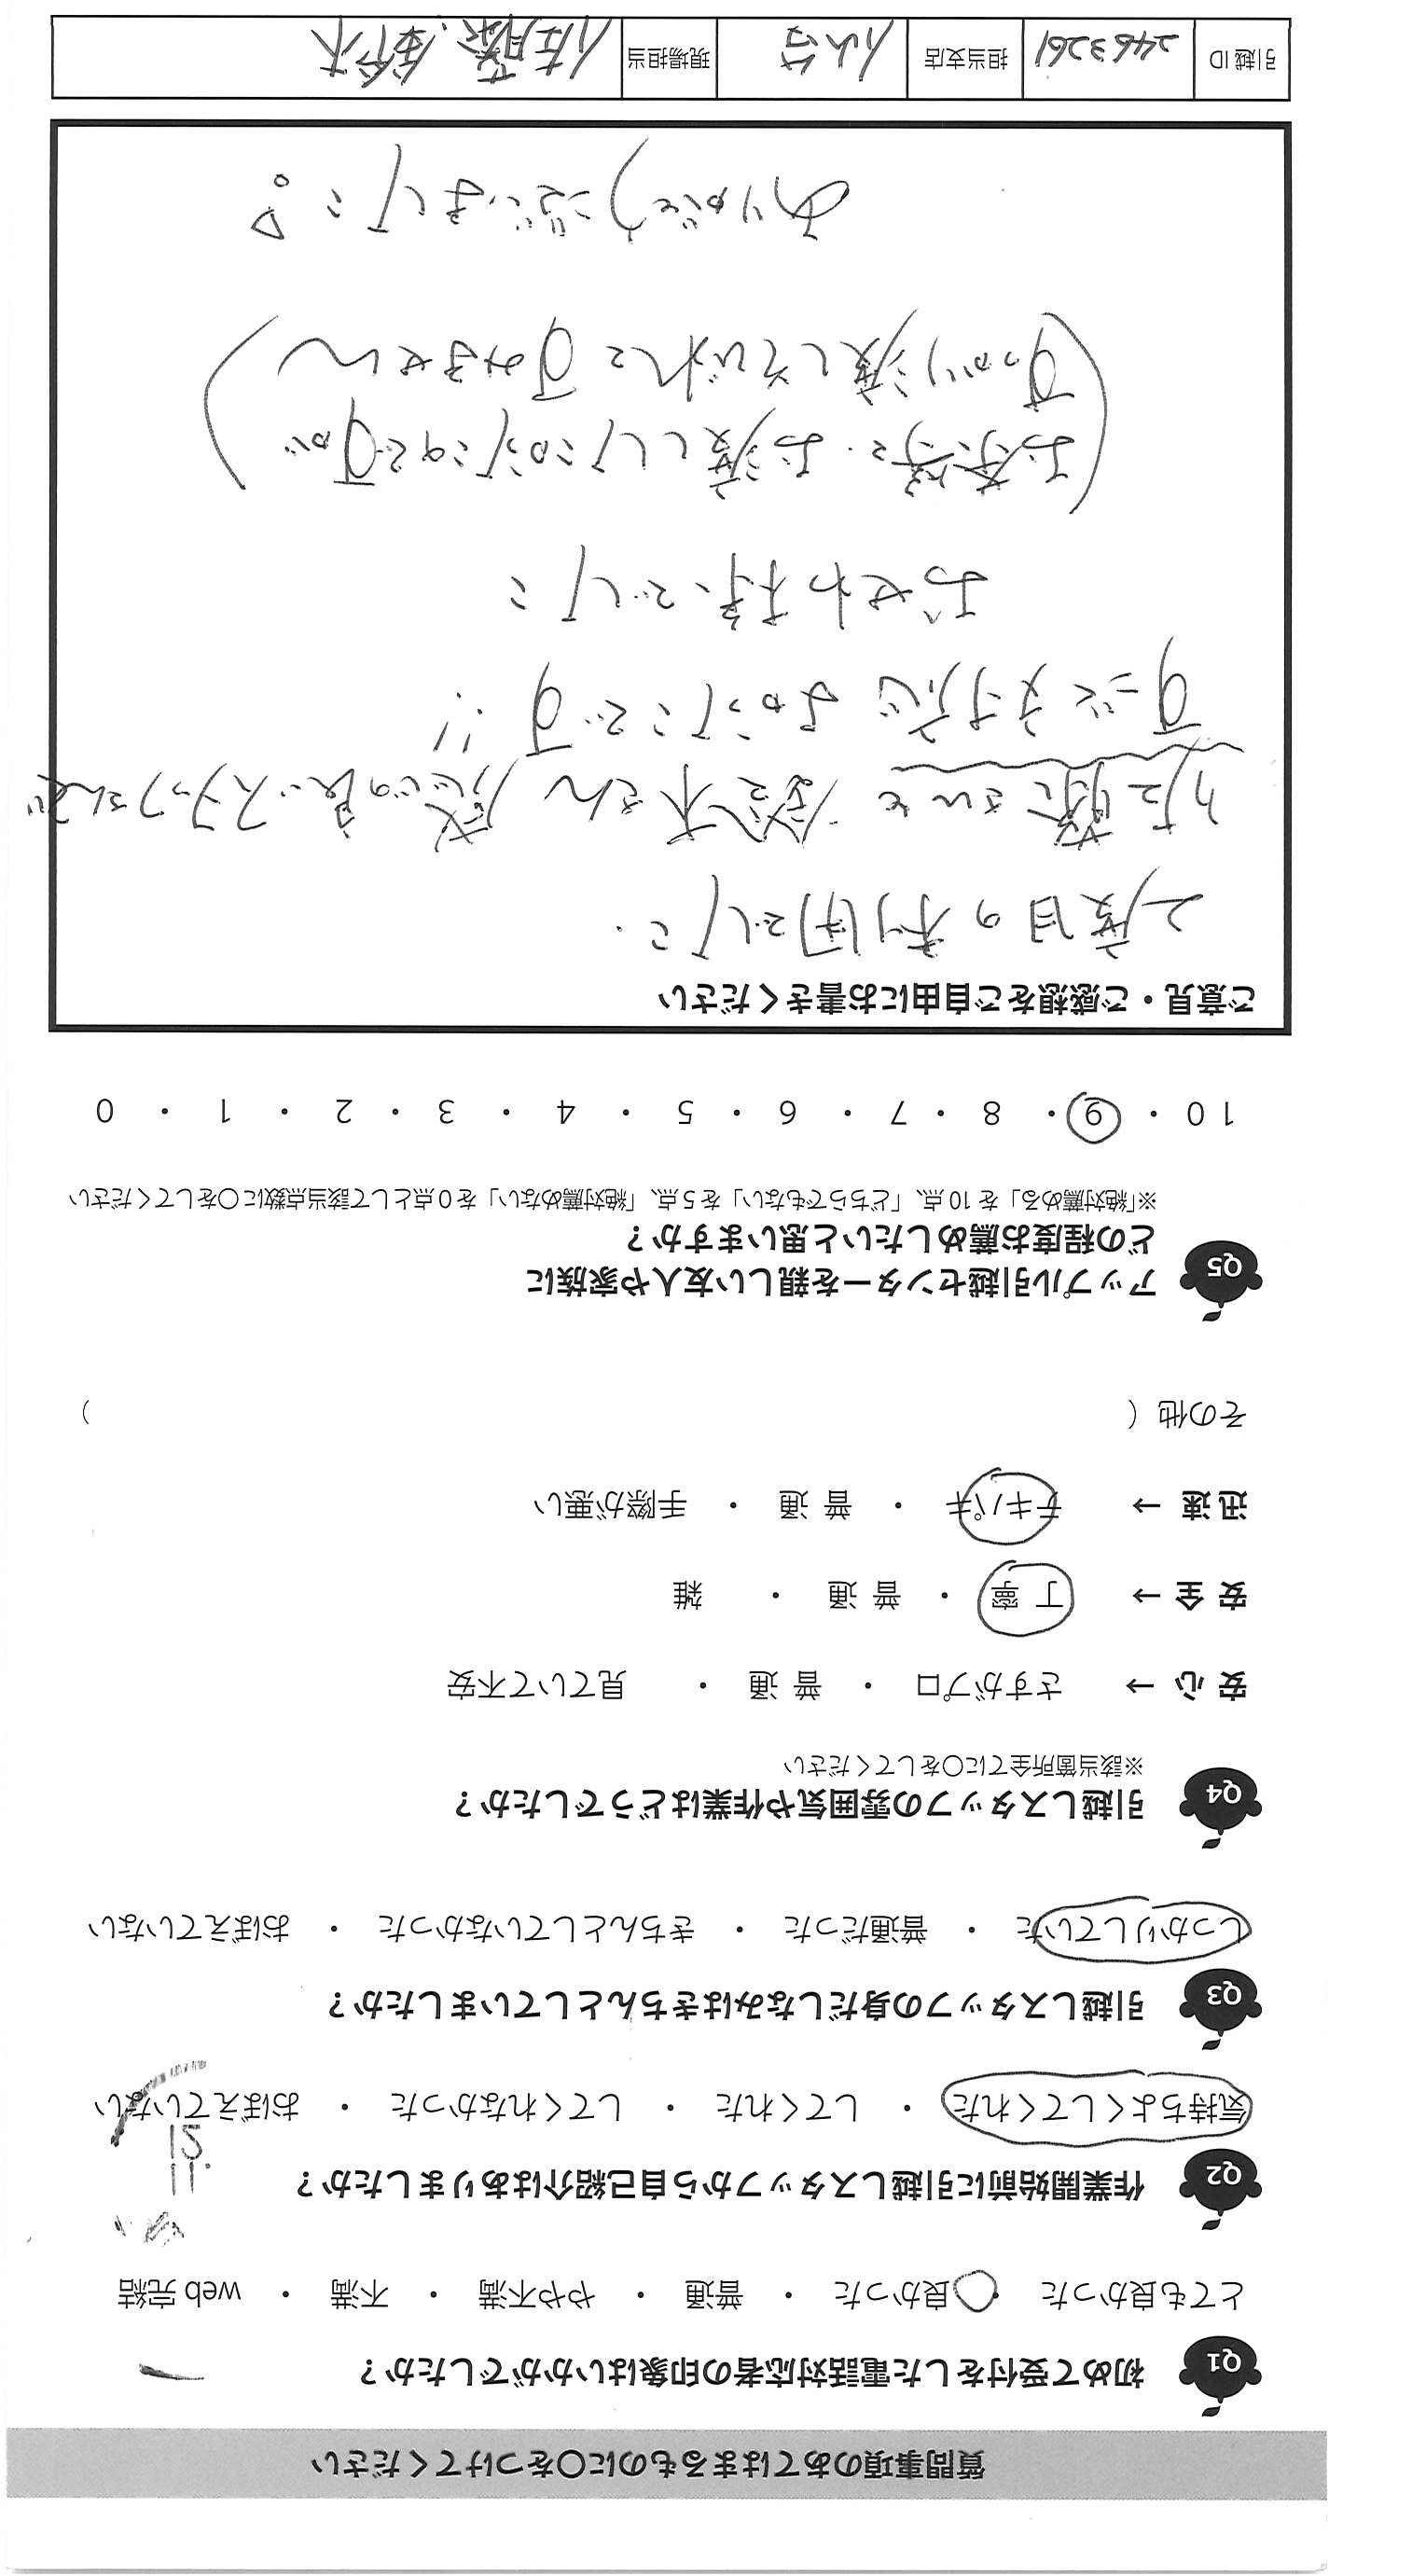 質問事項のあてはまるものに○をつけてください
Q1 初めて受付をした電話対応者の印象はいかがでしたか？
とても良かった ・ 良かった ・ 普通 ・ やや不満 ・ 不満 ・ web 完結
Q2 作業開始前に引越しスタッフから自己紹介はありましたか？
気持ちよくしてくれた ・ してくれた ・ してくれなかった ・ おぼえていない
Q3 引越しスタッフの身だしなみはきちんとしていましたか？
しっかりしていた ・ 普通だった ・ きちんとしていなかった ・ おぼえていない
Q4 引越しスタッフの雰囲気や作業はどうでしたか？
※該当箇所全てに○をしてください
安 心 → さすがプロ ・ 普 通 ・ 見ていて不安
安 全 → 丁 寧 ・ 普 通 ・ 雑
迅 速 → テキパキ ・ 普 通 ・ 手際が悪い
その他（ ）
Q5 アップル引越センターを親しい友人や家族に
どの程度お薦めしたいと思いますか？
※「絶対薦める」を 10 点、「どちらでもない」を 5 点、「絶対薦めない」を 0 点として該当点数に○をしてください
10 ・ 9 ・ 8 ・ 7 ・ 6 ・ 5 ・ 4 ・ 3 ・ 2 ・ 1 ・ 0
ご意見・ご感想をご自由にお書きください
2度目の利用でした.
佐藤さんと鈴木さん 感じの良いスタッフさんで
すごく 対応 よかったです!!
おせわ様でした
(お茶等を お渡ししたかったのですが
すっかり渡しそびれて すみません)
ありがとうございました。
引越 ID 2463261 担当支店 仙台 現場担当 佐藤. 鈴木